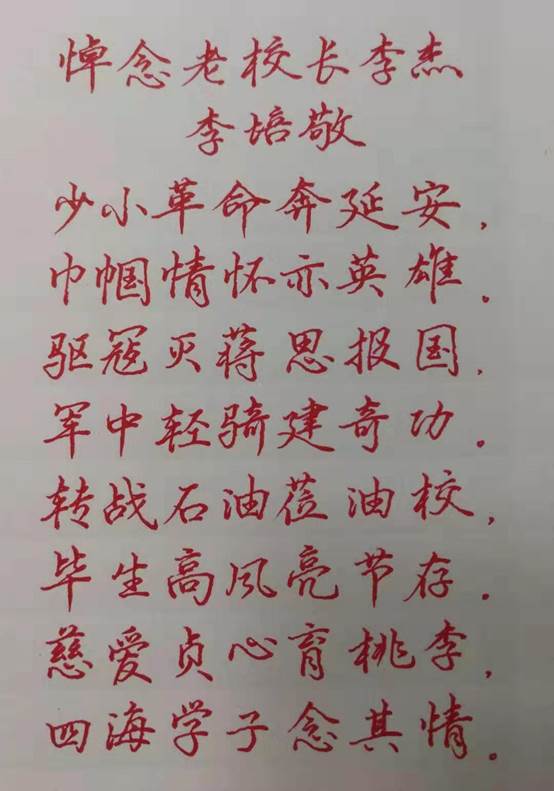 悼念老校长李杰
李培敬
少小革命奔延安,
巾帼情怀亦英雄.
驱寇灭蒋思报国,
军中轻骑建奇功.
转战石油莅油校,
毕生高风亮节存.
慈爱贞心育桃李,
四海学子念其情.